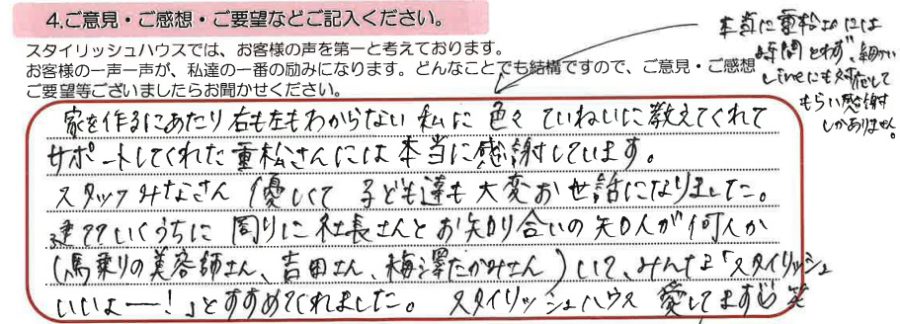 4.ご意見・ご感想・ご要望などご記入ください。
スタイリッシュハウスでは、お客様の声を第一と考えております。
お客様の一声一声が、私達の一番の励みになります。どんなことでも結構ですので、ご意見・ご感想
ご要望等ございましたらお聞かせください。
本当に重松さんには
時間とわず、細かい
Lineにも対応して
もらい感謝
しかありません。
家を作るにあたり右も左もわからない私に色々ていねいに教えてくれて
サポートしてくれた重松さんには本当に感謝しています。
スタッフみなさん優しくて子ども達も大変お世話になりました。
建てていくうちに周りに社長さんとお知り合いの知り人が何人か
(馬乗りの美容師さん、吉田さん、梅澤たかみさん)いて、みんな「スタイリッシュ
いいよー!」とすすめてくれました。スタイリッシュハウス愛してます笑